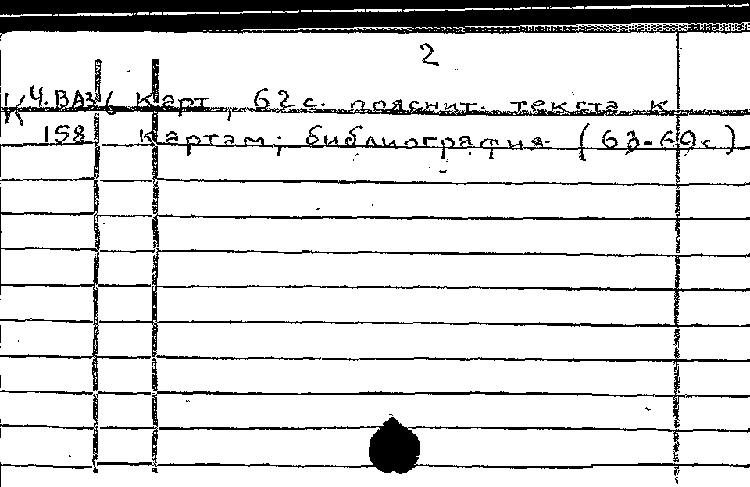 2
К 4.ВАз6 карт, 62с. пояснит. текста к
158 картам; библиография (63-69с)